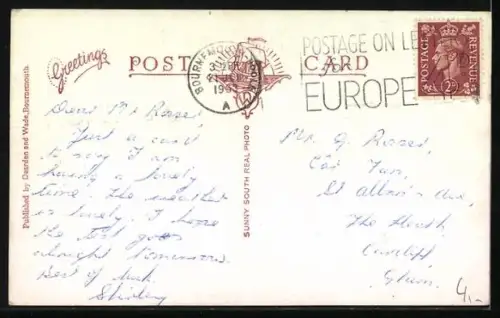 Greetings
POST CARD
BOURNEMOUTH POOLE
195
A
POSTAGE ON LE
FOR
EUROPE
POSTAGE REVENUE
2D
Published by Dearden and Wade, Bournemouth.
SUNNY SOUTH REAL PHOTO
Dear Mr Rosser
Just a card
to say I am
having a lovely
time. The weather
is lovely. I hope
the test goes
alright tomorrow.
Best of luck.
Shirley
Mr G Rosser,
St Albans Ave,
The Heath
Cardiff
Glam.
4,-